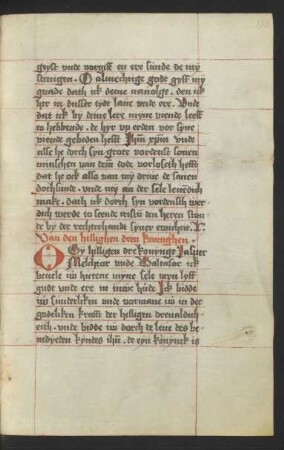 geyst unde vorgiff en ere sunde de my
pinigen. O almechtige godt gyff my
gnade dath ick deme navolge. den ick
hir in dusser tydt lave unde ere. Unde
dat ick by deme leve myne viende leeff
to hebbende. de hyr up erden vor syne
viende gebeden hefft Jhu xpm Unde
alse he dorch syn grote vordenst sonen
minschen van dem dode vorloseth hefft
dat he ock also van my drive de saken
dochsunde. unde my an der sele levendich
make. dath ick dorch syn vordensth wer
dich werde to seende cristum den heren stan
de by der rechterhandt synes
Van den hillighen dren konnighen.
O Gy hilligen dre konynge Jasper
Melchyor unde Baltasar ick
bevele iw hutene myne sele myn lyff
gudt unde ere in iuwe hude Ick bidde
iw sunderliken unde vormane iw in der
godeliken krafft der hilligen drevaldich
eith. unde bidde iw dorch de leve des ge
benedyeden kyndes ihu. de eyn konynck is